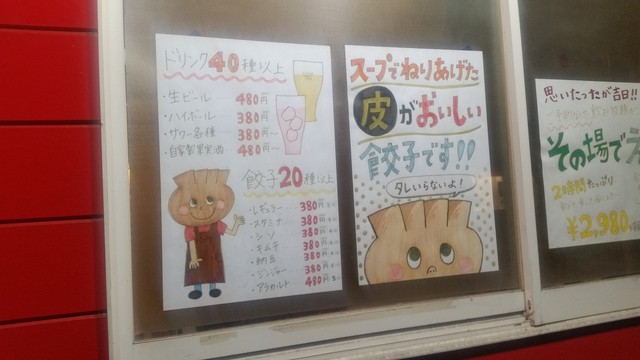 ドリンク40種以上
・生ビール 480円
・ハイボール 380円
・サワー各種 380円~
・自家製果実酒 480円~
餃子20種以上
・レギュラー 380円
・スタミナ 380円
・シソ 380円
・キムチ 380円
・納豆 380円
・ジンジャー 380円
・アラカルト 480円
スープでねりあげた
皮がおいしい
餃子です!!
タレいらないよ!
思いたったが吉日!!
その場で
2時間たっぷり
¥2,980